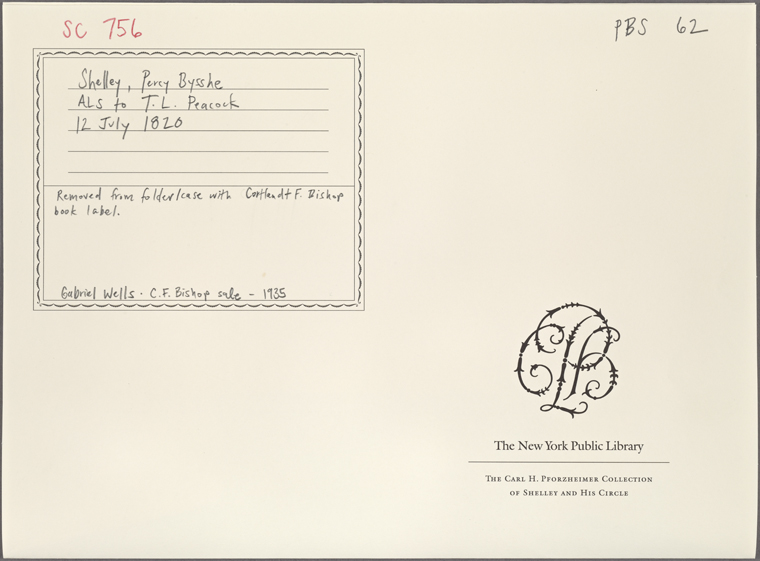 SC 756
PBS 62
Shelley, Percy Bysshe
ALS to T. L. Peacock
12 July 1820
Removed from folder/case with Cortlandt F. Bishop
book label.
Gabriel Wells · C.F. Bishop sale - 1935
The New York Public Library
The Carl H. Pforzheimer Collection
of Shelley and His Circle